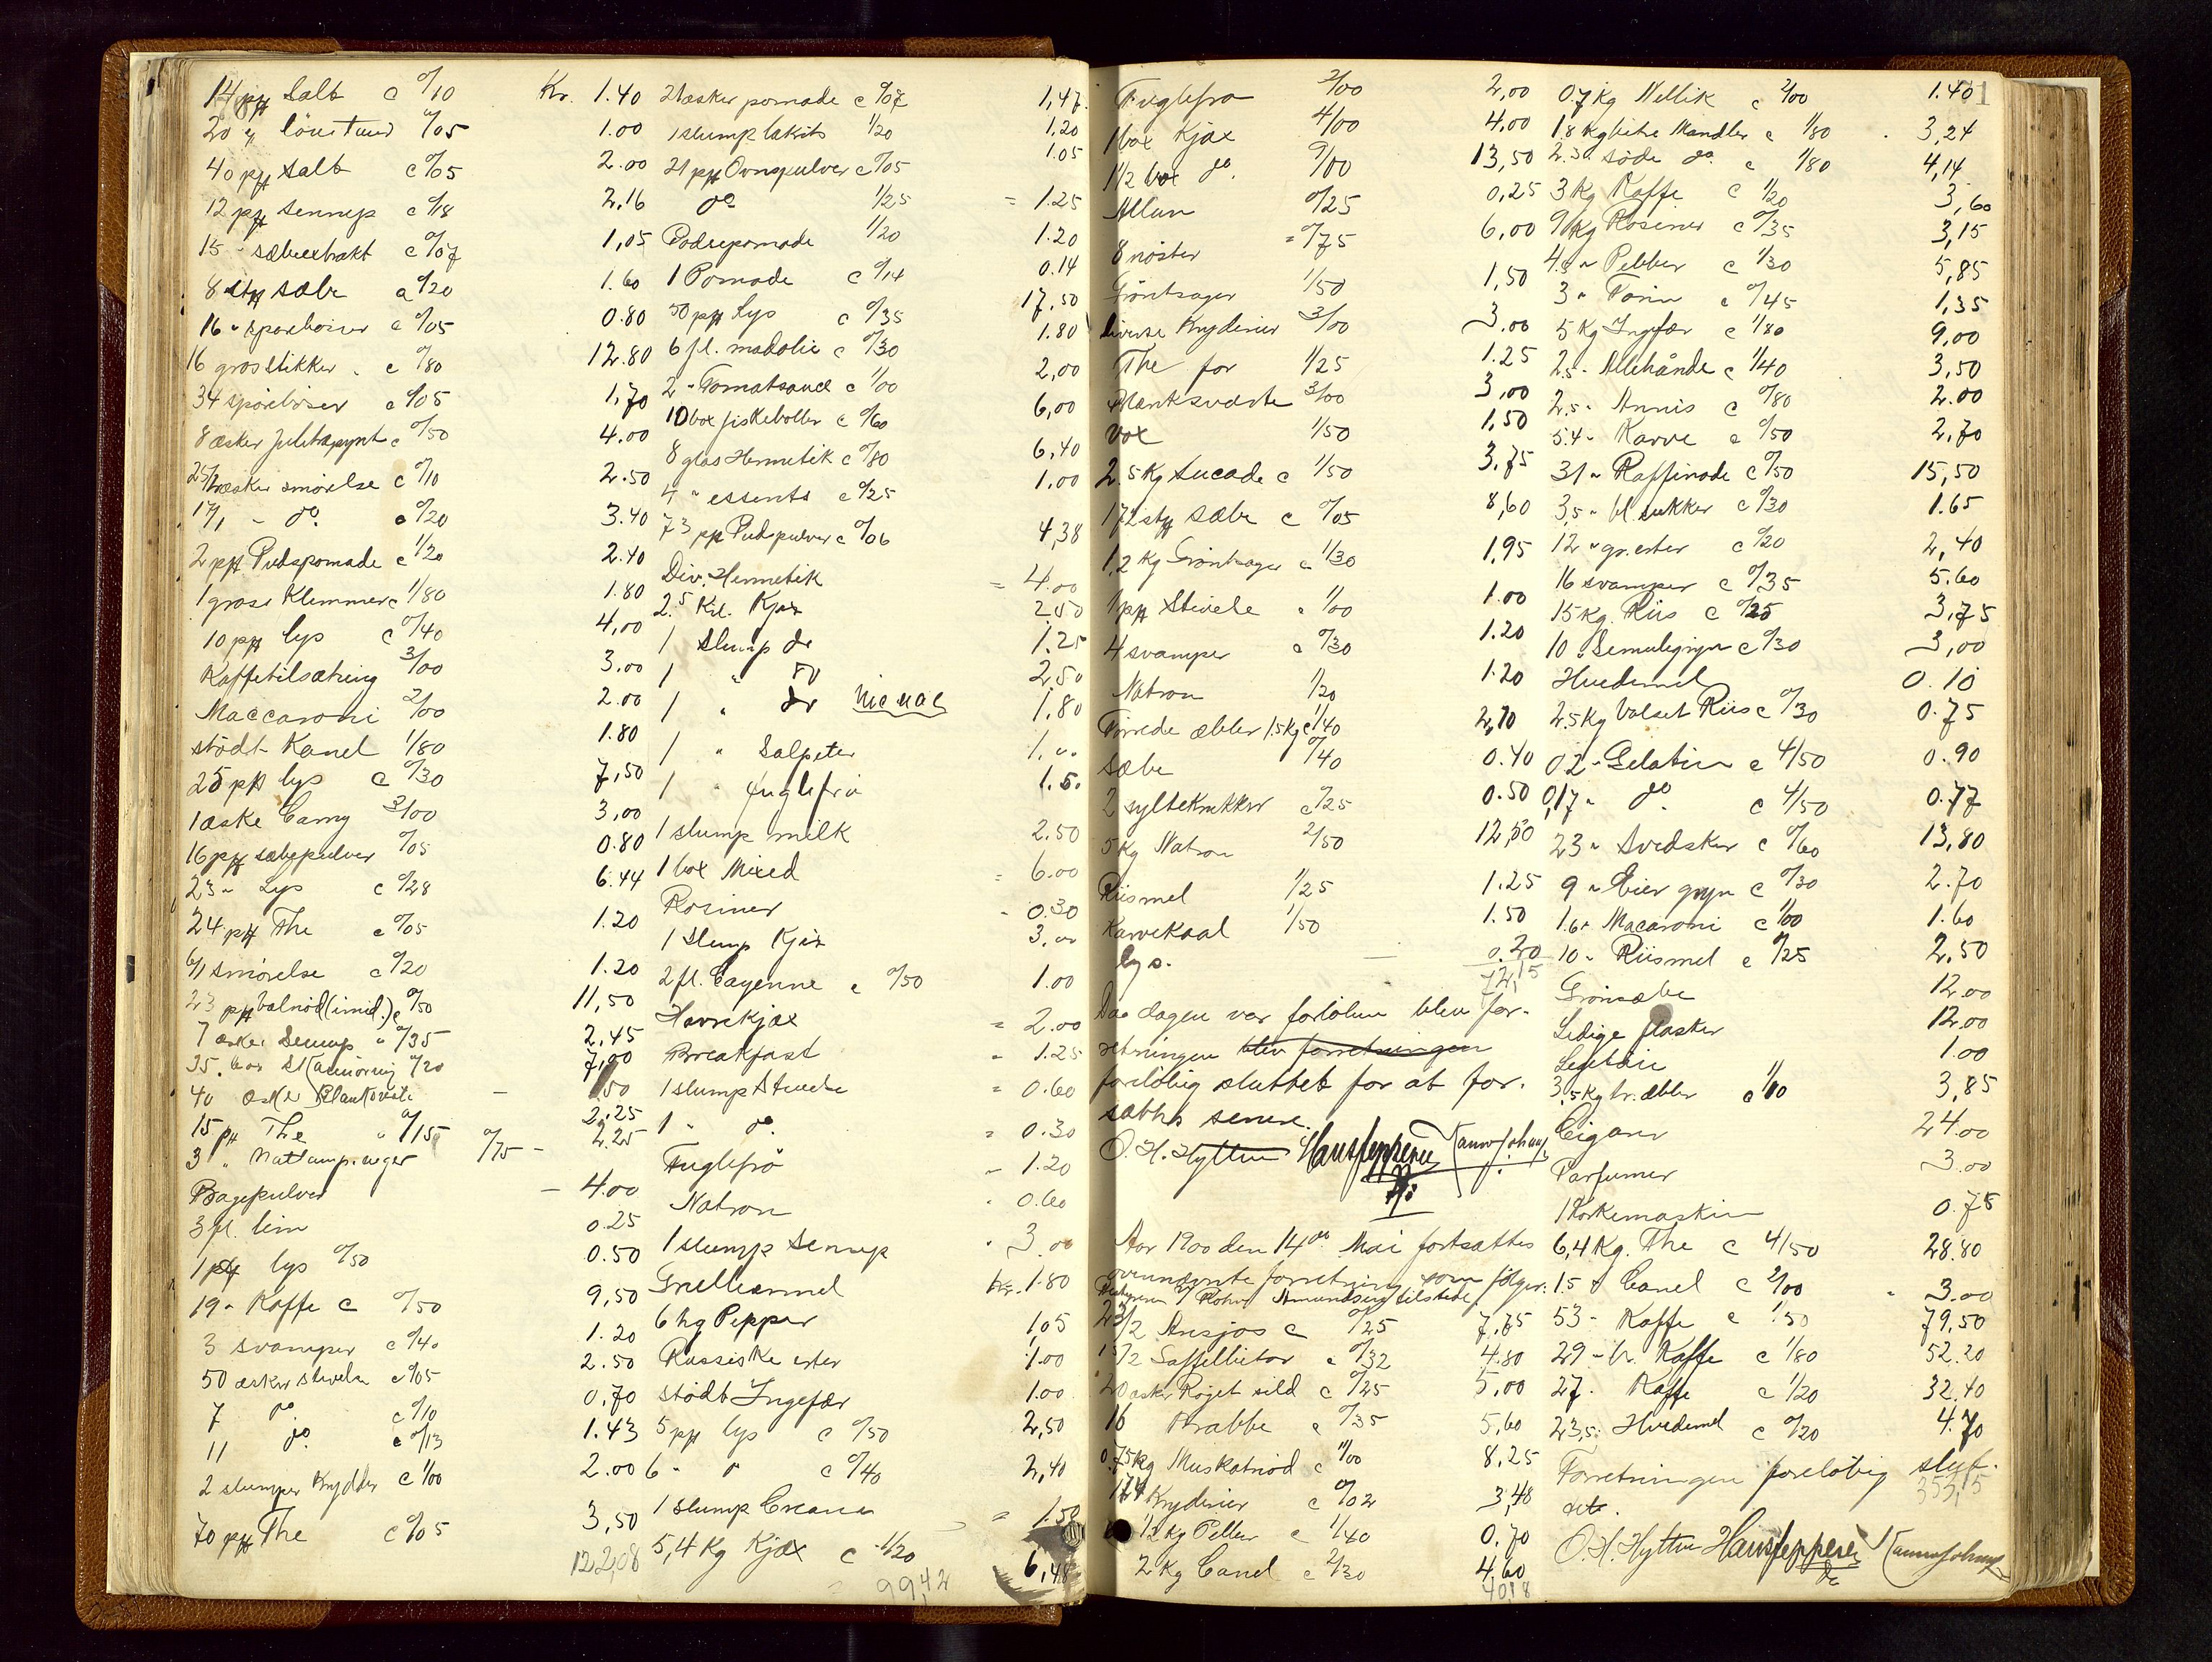 14 pk Salt c 0/10 Kr. 1.40
20 0/05 1.00
40 pk Salt c 0/05 2.00
12 pk Sennep c 0/18 2,16
15 - sæbeextrakt c 0/07 1,05
8 stk sæbe a 0/20 1.60
16 - sparebøsser c 0/05 0.80
16 gros stikker - c 0/80 12.80
34 sparebøser c 0/05 1,70
8 æsker Juletrepynt c 0/50 4.00
25/2 æsker smørelse c 0/10 2.50
17/1 - do. a 0/20 3.40
2 pk Pudspomade c 1/20 2.40
1 gross Klemmer c 1/80 1.80
10 pk lys c 0/40 4,00
Kaffetilsætning 3/00 3.00
Maccaroni 2/00 2.00
stødt Kanel 1/80 1.80
25 pk lys c 0/30 7,50
1 æske Camy 3/00 3,00
16 pk sæbepulver 0/05 0.80
23 - Lys c 0/28 6.44
24 pk The c 0/05 1.20
6/1 smørelse c 0/20 1.20
23 pk Valnød (imid.) c 0/50 11,50
7 æsker Sennep " 0/35 2,45
35 0/20 7,00
40 æsker Blanksværte - 50
15 pk The " 0/15 2,25
3 " Natlamp.veger 0/75 - 2.25
Bagepulver - 4.00
3 fl. lim 0.25
1 pk lys 0/50 0.50
19 - Kaffe c 0/50 9,50
3 svamper c 0/40 1.20
50 æsker stivelse c 0/05 2.50
7 do. c 0/10 0,70
11 do. c 0/13 1.43
2 slumper Krydder c 1/00 2.00
70 pk The c 0/05 3,50
122,08
21 æsker pomade c 0/07 1,47
1 slump lakrits 1/20 1,20
21 pk Ovnspulver c 0/05 1.05
do 1/25 = 1.25
Pudsepomade 1/20 1.20
1 Pomade c 0/14 0.14
50 pk Lys c 0/35 17,50
6 fl. madolie c 0/30 1.80
2 - Tomatsauce c 1/00 2,00
10 box fiskeboller c 0/60 6,00
8 glas Hermetik c 0/80 6,40
4 " essents c 0/25 1,00
73 pk Pudspulver c 0/06 4,38
Div. Hermetik = 4.00
2.5 Kil. Kjæx 2.50
1 Slump do 1.25
1 " do 2,50
1 " do 1,80
1 " Salpeter 1,00
1 " fuglefrø 1.50
1 slump milk 2.50
1 box Mixed = 6.00
Rosiner - 0.30
1 Slump Kjæx 3,00
2 fl. Cayenne c 0/50 1.00
Havrekjæx = 2.00
Breakfast = 1.25
1 slump Stivelse = 0.60
1 " do. = 0.30
Fuglefrø - 1.20
Natron - 0.60
1 slump Sennep - 3.00
Grillieamel Kr. 1.80
6 hg Pepper 1,05
Russiske erter 1.00
stødt Ingefær 1.00
5 pk lys c 0/50 2,50
6 - do c 0/40 2,40
1 slump Creana = 1.50
5,4 Kg Kjæx c 1/20 6,48
99,42
Fuglefrø 2/00 2,00
1 box Kjæx 4/00 4.00
1 1/2 box do. 9/00 13,50
Allun 0/25 0,25
8 nøster = 0/75 6,00
Grøntsager 1/50 1,50
diverse Krydderier 3/00 3.00
The for 1/25 1.25
Blanksværte 3/00 3,00
Vox 1/50 1,50
2.5 Kg Sucade c 1/50 3,75
172 stk sæbe c 0/05 8,60
1,2 Kg Grøntsager c 1/30 1,95
1 pk Stivelse c 1/00 1.00
4 svamper a 0/30 1.20
Natron 1/20 1.20
Tørrede æbler 1,5 Kg c 1/40 2,10
sæbe 0/40 0.40
2 syltekrukker c 0/25 0.50
5 Kg Natron 2/50 12,50
Riismel 1/25 1.25
Karvekaal 1/50 1.50
lys. — 0.20
72,15
Daa dagen var forløben blev for-
retningen blev forretningen
foreløbig sluttet for at for-
sættes senere.
O. H. Hyttne Hans Jeppesen
Aar 1900 den 14de Mai fortsattes
ovennævnte forretning som følger:
23/2 Ansjos c 0/25 7,75
15/2 Gaffelbiter c 0/32 4.80
20 æsker Røget sild c 0/25 5,00
16 Krabbe c 0/35 5,60
0.75 Kg Muskatnød c 11/00 8,25
174 Krydderier c 0/02 3,48
1/2 Kg Peber c 1/40 0.70
2 Kg Canel c 2/30 4,60
40,18
0.7 Kg Nellik c 2/00 1.40
1.8 Kg bitre Mandler c 1/80 3,24
2.3 " søde do. c 1/80 4,14
3 Kg Kaffe c 1/20 3,60
9 Kg Rosiner c 0/35 3,15
4.5 " Pebber c 1/30 5,85
3 " Farin c 0/45 1,35
5 Kg Ingefær c 1/80 9,00
2.5 - Allehånde c 1/40 3,50
2.5 - Annis c 0/80 2.00
5.4 - Karve c 0/50 2,70
31 " Raffinade c 0/50 15,50
3,5 - bl. sukker c 0/30 1.65
12 " gr. erter c 0/20 2,40
16 svamper c 0/35 5.60
15 Kg. Riis c 0/25 3,75
10 " Semulegryn c 0/30 3,00
Hvedemel 0.10
2.5 Kg Valset Riis c 0/30 0.75
0 2 - Gelatin c 4/50 0.90
0,17 " do. c 4/50 0.77
23 " Svedsker c 0/60 13,80
9 " Bier gryn c 0/30 2.70
1.6 " Macaroni c 1/00 1.60
10 - Riismel c 0/25 2,50
Grønsæbe 12.00
Ledige flasker 12.00
1.00
3.5 Kg tr. æbler c 1/10 3,85
Cigarer 24.00
Parfumer 3.00
1 Korkemaskin 0.75
6,4 Kg. The c 4/50 28.80
1.5 " Canel c 2/00 3.00
53 - Kaffe c 1/50 79,50
29 - br. Kaffe c 1/80 52.20
27 - Kaffe c 1/20 32,40
23,5 - Hvedemel c 0/20 4.70
Forretningen foreløbig slut-
tet. 353,15
O. H. Hyttne Hans Jeppesen